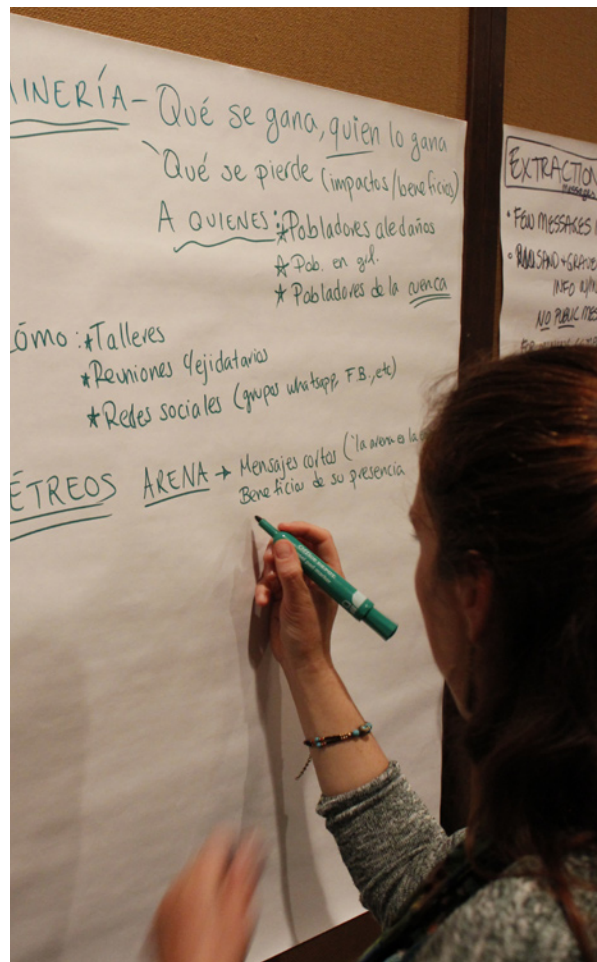 MINERÍA - Qué se gana, quien lo gana
Qué se pierde (impactos/beneficios)
A QUIENES: * Pobladores aledaños
* Pob. en gil.
* Pobladores de la cuenca
Cómo: * Talleres
* Reuniones c/ejidatarios
* Redes sociales (grupos whatsapp, F.B., etc)
ÉTREOS ARENA → Mensajes cortos ("la arena es la
Beneficios de su presencia
EXTRACTION
messages
• FEW MESSAGES
• SAND + GRAVE
INFO
NO PUBLIC MES